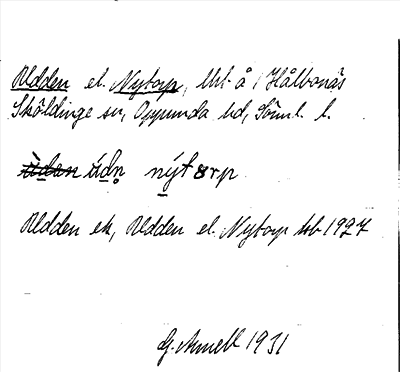 Uddden el. Nytorp, lht å Hålbonäs
Sköldinge sn, Oppunda hd, Söml. l.
ùden údn nýtorp
Udden ek, Udden el. Nytorp tsb 1927
G. Annell 1931